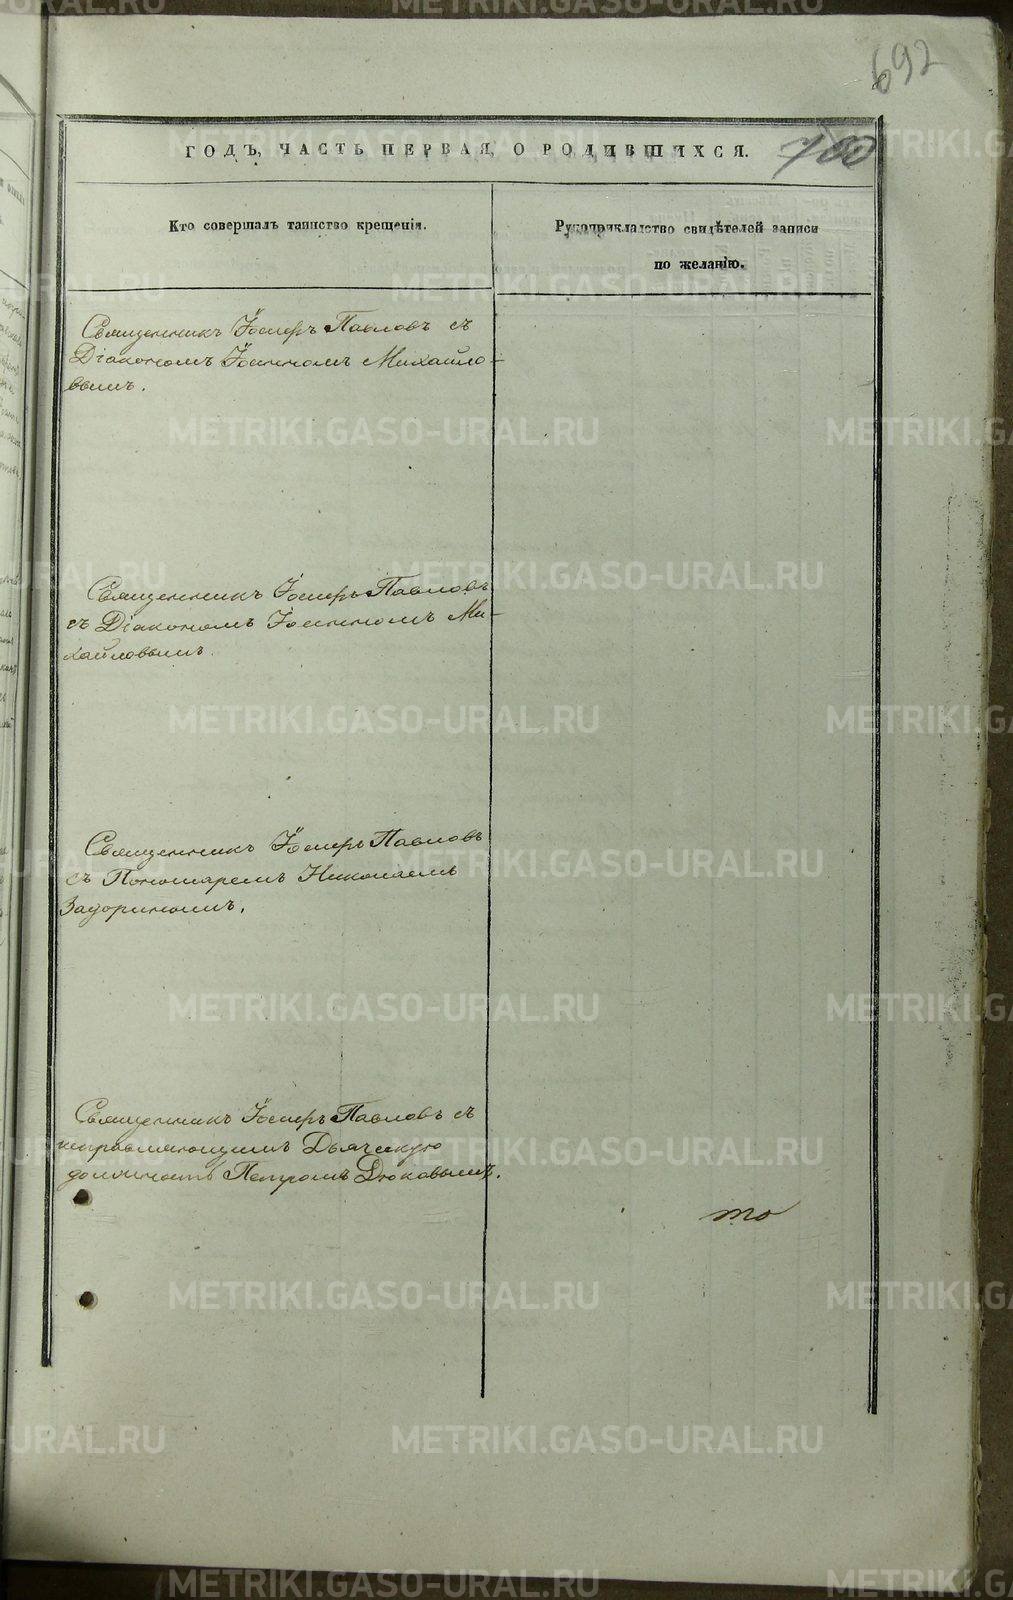 692
ГОДЪ, ЧАСТЬ ПЕРВАЯ, О РОДИВШИХСЯ.
700
Кто совершалъ таинство крещенія.
Рукоприкладство свидѣтелей записи
по желанію.
Священникъ Іосифъ Павловъ съ
Діакономъ Іоанномъ Михайло-
вымъ.
Священникъ Іосифъ Павловъ
съ Діакономъ Іоанномъ Ми-
хайловымъ.
Священникъ Іосифъ Павловъ
съ Пономаремъ Николаемъ
Задоринымъ.
Священникъ Іосифъ Павловъ съ
исправляющимъ Дьяческую
должность Петромъ Дюковымъ.
то
METRIKI.GASO-URAL.RU